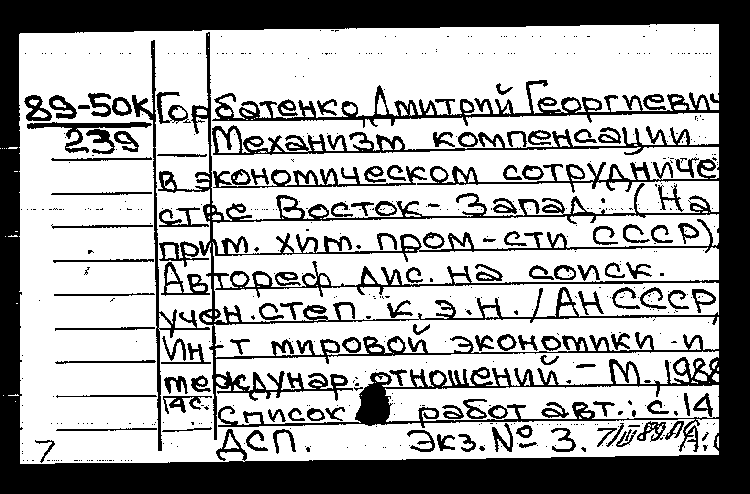 89-50к Горбатенко, Дмитрий Георгиевич
239 Механизм компенсации
в экономическом сотрудниче
стве Восток - Запад: (На
прим. хим. пром-сти СССР):
Автореф. дис. на соиск.
учен. степ. к. э. н. / АН СССР,
Ин-т мировой экономики и
междунар. отношений. - М., 1988
14 с.
список работ авт.: с. 14
ДСП. Экз. № 3. 7/III 89.
7